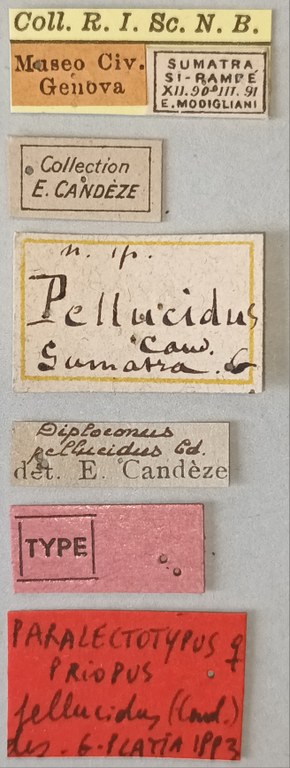 Coll. R. I. Sc. N. B.
Museo Civ.
Genova
SUMATRA
SI-RAMBÉ
XII. 90-III. 91
E. MODIGLIANI
Collection
E. CANDÈZE
n. sp.
Pellucidus
Cand.
Sumatra. G
Diploconus
pellucidus Cd.
det. E. Candèze
TYPE
PARALECTOTYPUS ♀
PRIOPUS
pellucidus (Cand.)
des. G. PLATIA 1993